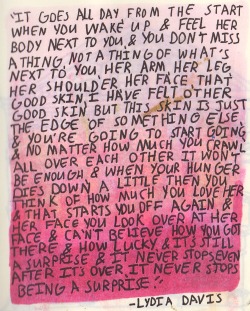 "IT GOES ALL DAY, FROM THE START
WHEN YOU WAKE UP & FEEL HER
BODY NEXT TO YOU, & YOU DON'T MISS
A THING, NOT A THING OF WHAT'S
NEXT TO YOU, HER ARM, HER LEG,
HER SHOULDER, HER FACE, THAT
GOOD SKIN, I HAVE FELT OTHER
GOOD SKIN, BUT THIS SKIN IS JUST
THE EDGE OF SOMETHING ELSE,
& YOU'RE GOING TO START GOING,
& NO MATTER HOW MUCH YOU CRAWL
ALL OVER EACH OTHER IT WON'T
BE ENOUGH, & WHEN YOUR HUNGER
DIES DOWN A LITTLE THEN YOU
THINK OF HOW MUCH YOU LOVE HER
& THAT STARTS YOU OFF AGAIN, &
HER FACE, YOU LOOK OVER AT HER
FACE & CAN'T BELIEVE HOW YOU GOT
THERE & HOW LUCKY & IT'S STILL
A SURPRISE & IT NEVER STOPS, EVEN
AFTER IT'S OVER, IT NEVER STOPS
BEING A SURPRISE."
-LYDIA DAVIS